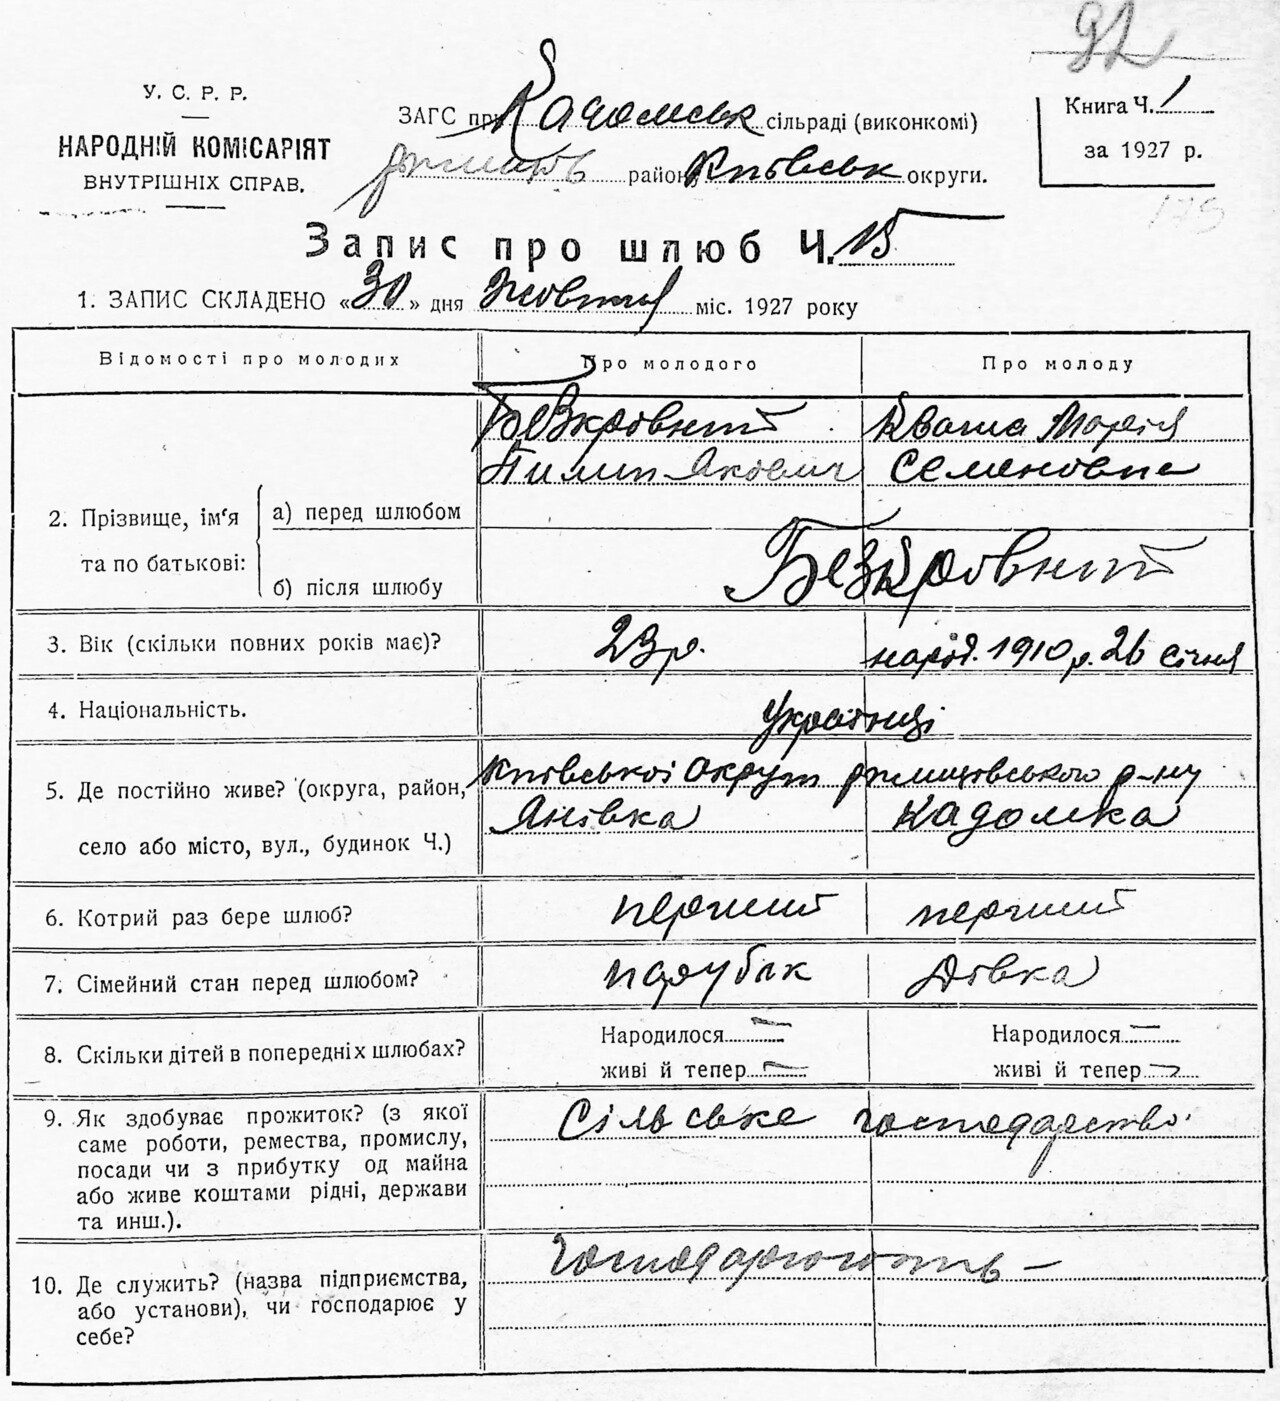 92
У. С. Р. Р.
НАРОДНІЙ КОМІСАРІЯТ
ВНУТРІШНІХ СПРАВ.
ЗАГС при Кадомськ сільраді (виконкомі)
району Київськ округи.
Книга Ч. 1
за 1927 р.
175
Запис про шлюб Ч. 15
1. ЗАПИС СКЛАДЕНО «30» дня Жовтня міс. 1927 року
Відомості про молодих
Про молодого
Про молоду
2. Прізвище, ім'я та по батькові:
а) перед шлюбом
Безкровний
Пилип Якович
Кваша Марія
Семеновна
б) після шлюбу
Безкровний
3. Вік (скільки повних років має)?
23 р.
народ. 1910 р. 26 січня
4. Національність.
Українці
5. Де постійно живе? (округа, район,
село або місто, вул., будинок Ч.)
Київської округи р-ну
Янівка
Кадомка
6. Котрий раз бере шлюб?
перший
перший
7. Сімейний стан перед шлюбом?
парубок
дівка
8. Скільки дітей в попередніх шлюбах?
Народилося —
живі й тепер —
Народилося —
живі й тепер —
9. Як здобуває прожиток? (з якої
саме роботи, ремества, промислу,
посади чи з прибутку од майна
або живе коштами рідні, держави
та инш.).
Сільське господарство.
10. Де служить? (назва підприємства,
або установи), чи господарює у
себе?